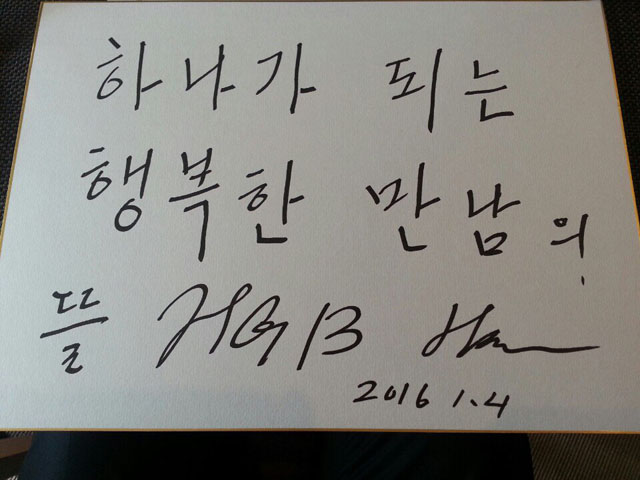 하나가 되는
행복한 만남의
뜰 HGB Han
2016 1.4